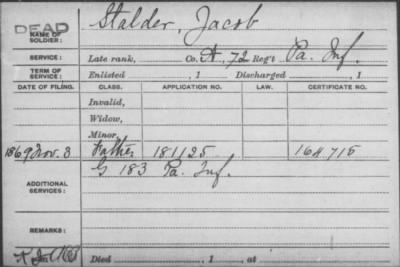 DEAD
NAME OF SOLDIER: Stalder, Jacob
SERVICE: Late rank, Co. A, 72 Reg't Pa. Inf.
TERM OF SERVICE: Enlisted , 1 Discharged , 1
DATE OF FILING. CLASS. APPLICATION NO. LAW. CERTIFICATE NO.
Invalid,
Widow,
Minor,
1869 Nov. 3 Father 181125 164715
ADDITIONAL SERVICES: G 183 Pa. Inf.
REMARKS:
Died , 1 , at